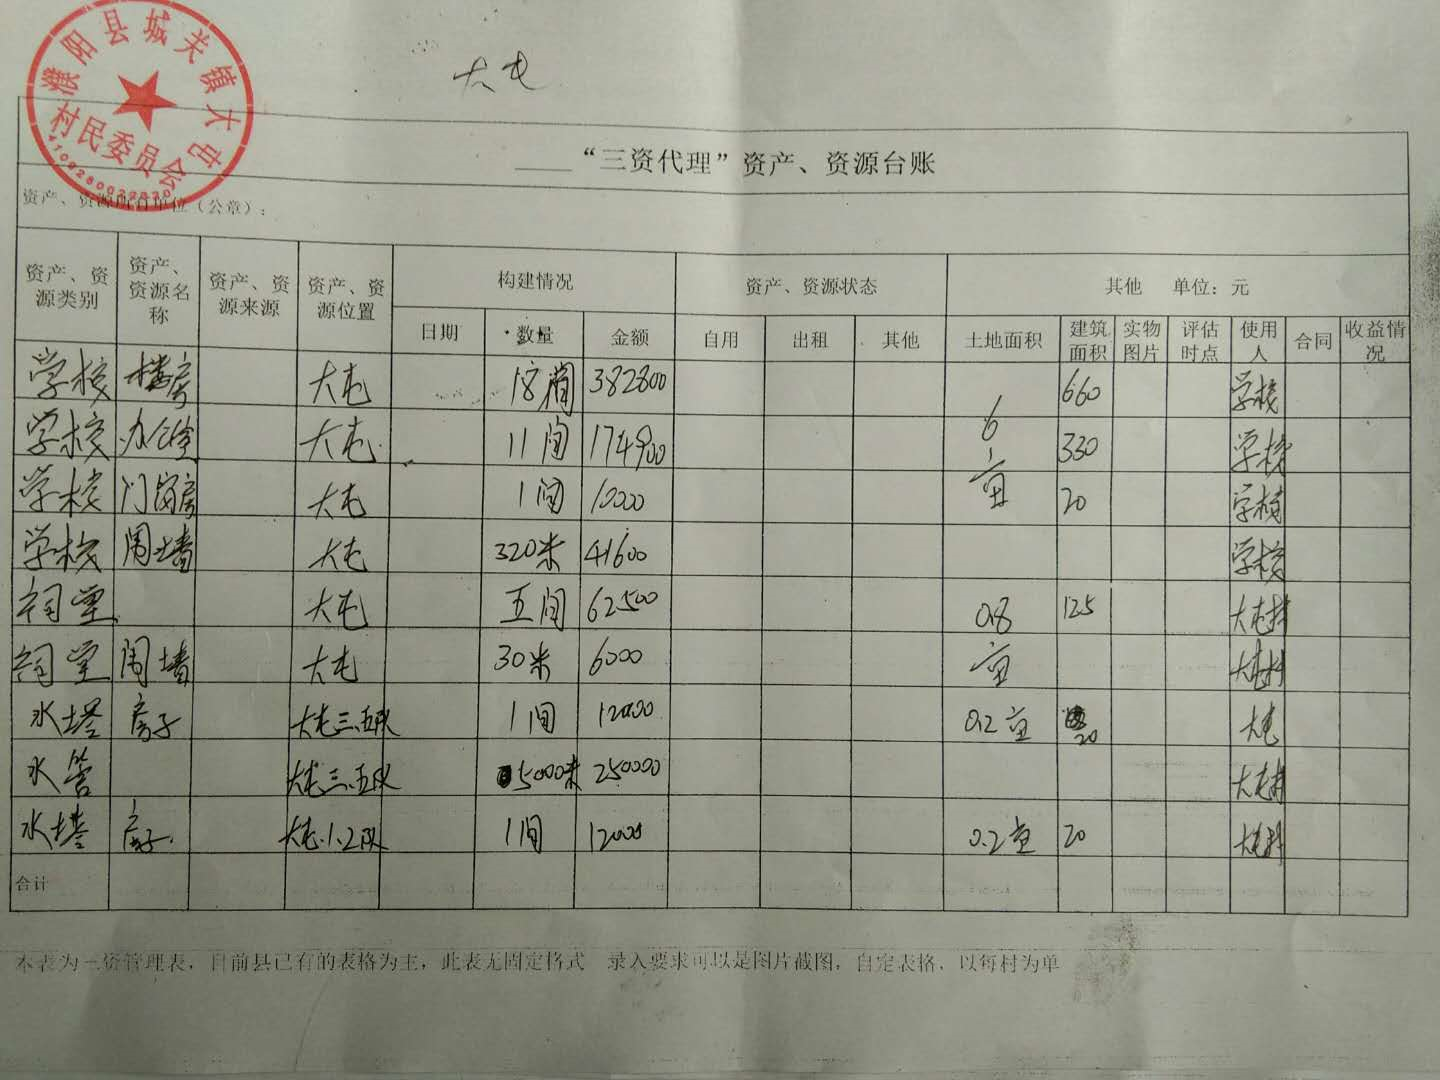 大屯
濮阳县城关镇大屯
村民委员会
“三资代理”资产、资源台账
资产、资源所有单位（公章）：
资产、资源类别 资产、资源名称 资产、资源来源 资产、资源位置 构建情况 资产、资源状态 其他 单位：元
日期 数量 金额 自用 出租 其他 土地面积 建筑面积 实物图片 评估时点 使用人 合同 收益情况
学校 楼房 大屯 18间 382800 6亩 660 学校
学校 办公室 大屯 11间 174900 330 学校
学校 门岗房 大屯 1间 10000 20 学校
学校 围墙 大屯 320米 41600 学校
祠堂 大屯 五间 62500 0.8亩 125 大屯村
祠堂 围墙 大屯 30米 6000 大屯村
水塔 房子 大屯三.五队 1间 12000 0.2亩 20 大屯
水管 大屯三.五队 5000米 250000 大屯村
水塔 房子. 大屯.1.2队 1间 12000 0.2亩 20 大屯村
合计
本表为三资管理表，目前县已有的表格为主，此表无固定格式 录入要求可以是图片截图，自定表格，以每村为单